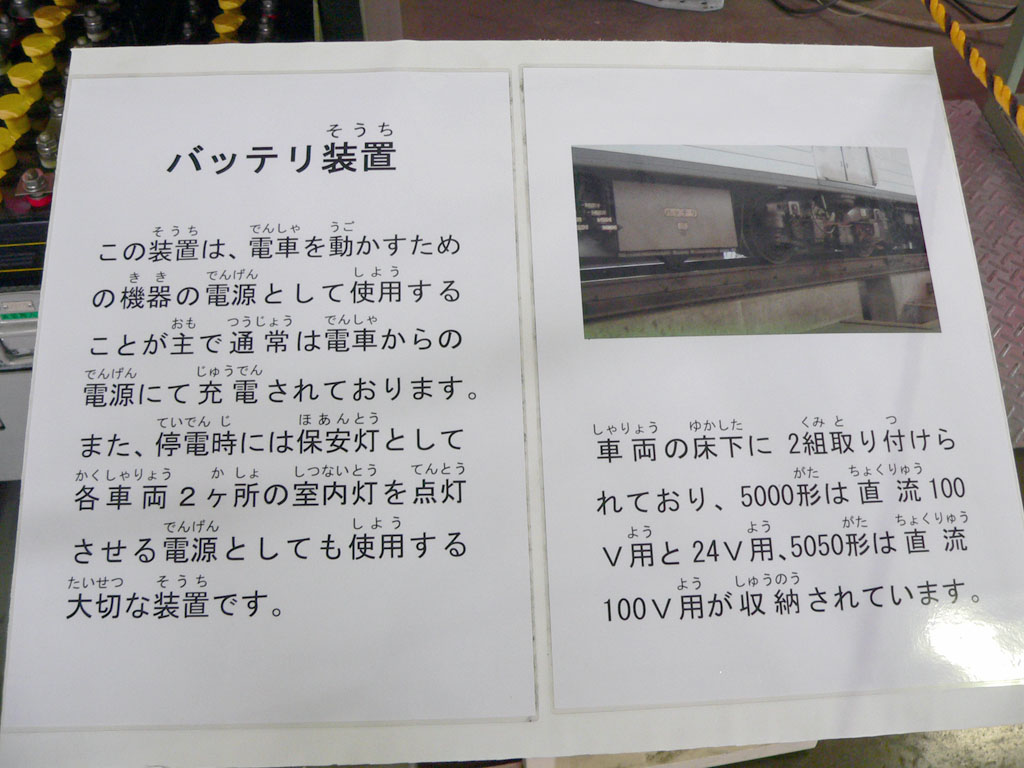 そうち
バッテリ装置
そうち でんしゃ うご
この装置は、電車を動かすため
きき でんげん しよう
の機器の電源として使用する
おも つうじょう でんしゃ
ことが主で通常は電車からの
でんげん じゅうでん
電源にて充電されております。
ていでんじ ほあんとう
また、停電時には保安灯として
かくしゃりょう かしょ しつないとう てんとう
各車両2ヶ所の室内灯を点灯
でんげん しよう
させる電源としても使用する
たいせつ そうち
大切な装置です。
しゃりょう ゆかした くみと つ
車両の床下に2組取り付けら
がた ちょくりゅう
れており、5000形は直流100
よう よう がた ちょくりゅう
V用と24V用、5050形は直流
よう しゅうのう
100V用が収納されています。